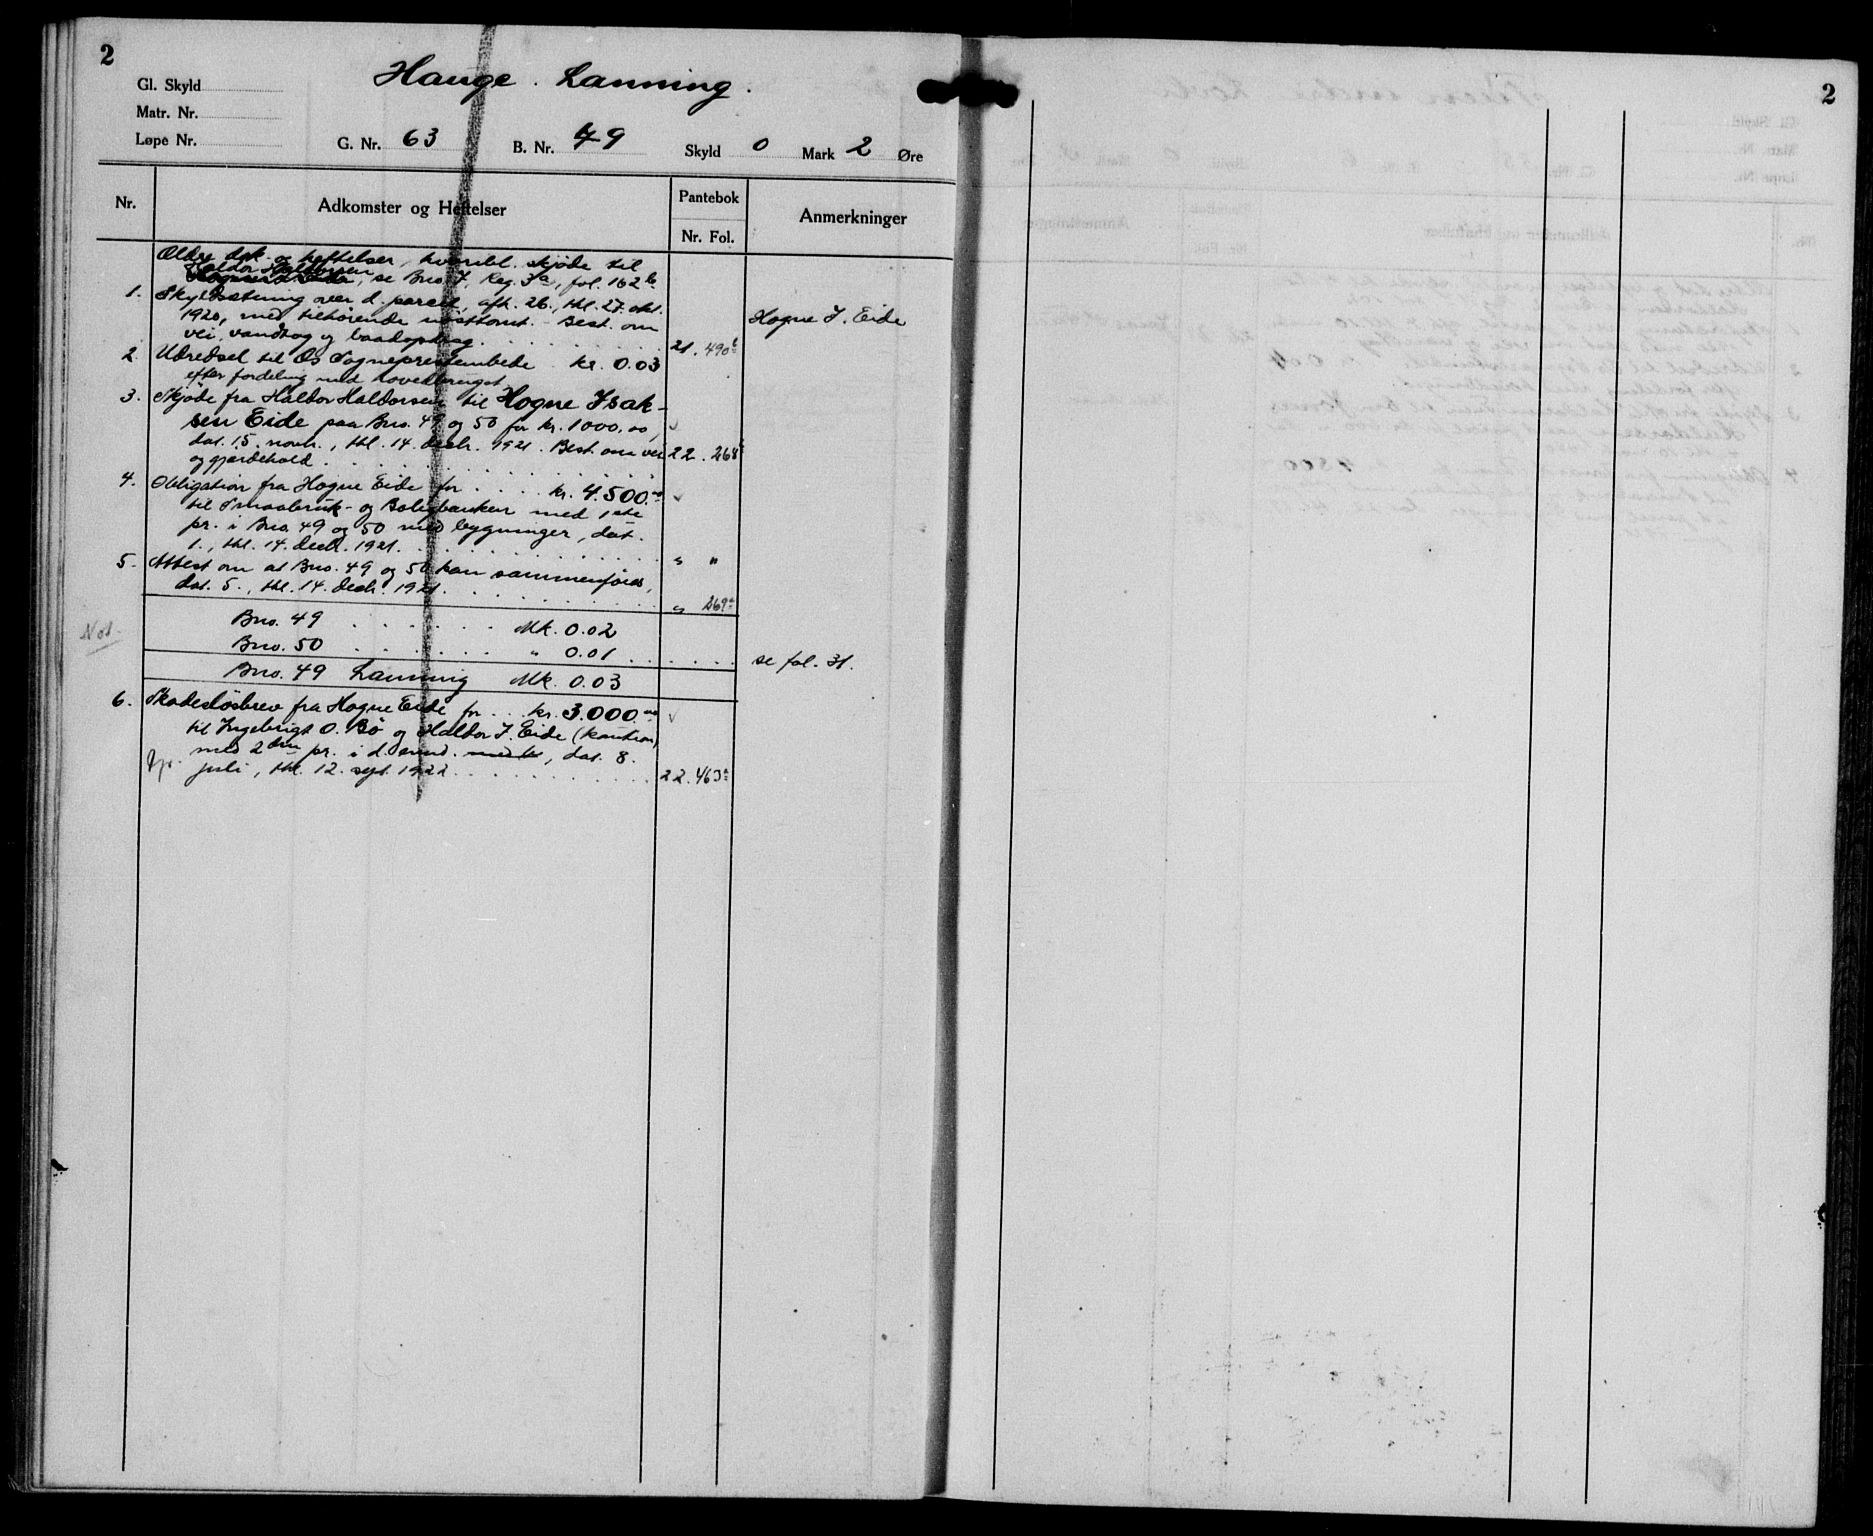 2
Gl. Skyld
Hauge. Lanning.
Matr. Nr.
Løpe Nr.
G. Nr. 63 B. Nr. 49 Skyld 0 Mark 2 Øre
Nr. Adkomster og Heftelser Pantebok Anmerkninger
Nr. Fol.
Ældre dok. og heftelser, hvoribl. skjøde til
Haldor Haldorsen, se Bno. 7, Reg. 3a, fol. 162b
1. Skyldsetning over d. parcel, afh. 26., thl. 27. okt.
1920, med tilhørende nøsttomt. Best. om Hogne I. Eide
vei, vandtog og baadoptrag. 21. 490b
2. Utredsel til Os Sogneprestembede kr. 0.03
efter fordeling med hovedbruget
3. Skjøde fra Haldor Haldorsen til Hogne Isak-
sen Eide paa Bno. 49 og 50 for kr. 1000.00,
dat. 15. novbr., thl. 14. decbr. 1921. Best. om vei 22. 268b
og gjærdehold
4. Obligation fra Hogne Eide for kr. 4.500.00
til Smaabruk- og Boligbanken med 1ste
pr. i Bno. 49 og 50 med bygninger, dat.
1., thl. 14. decbr. 1921. " "
5. Attest om at Bno. 49 og 50 kan sammenføies,
dat. 5., thl. 14. decbr. 1921. " 269a
Not.
Bno. 49 Mk. 0.02
Bno. 50 " 0.01 se fol. 31.
Bno. 49 Lanning Mk. 0.03
6. Skadesløsbrev fra Hogne Eide for kr. 3.000.00
til Ingebrigt O. Bø og Haldor I. Eide (kaution)
med 2den pr. i d. eiend., dat. 8.
juli, thl. 12. sept. 1922 22. 463a
2